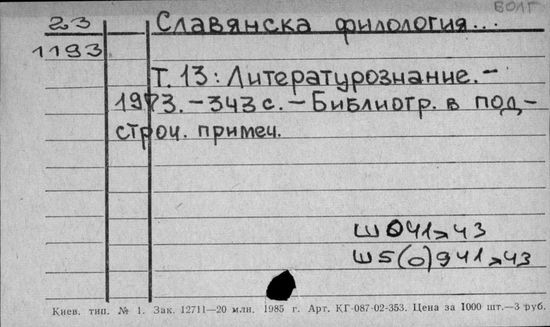 БОЛГ
23 Славянска филология...
1193
Т. 13: Литературознание.–
1973.–343 с.–Библиогр. в под-
строч. примеч.
Ш041э43
Ш5(0)941э43
Киев. тип. № 1. Зак. 12711—20 млн. 1985 г. Арт. КГ-087-02-353. Цена за 1000 шт.—3 руб.